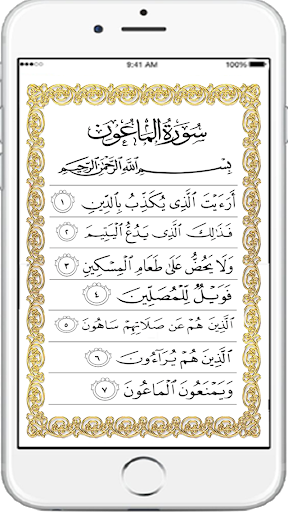 9:41 AM 100%
سُورَةُ المَاعُون
بِسْمِ اللَّهِ الرَّحْمَٰنِ الرَّحِيمِ
أَرَءَيْتَ ٱلَّذِى يُكَذِّبُ بِٱلدِّينِ ١
فَذَٰلِكَ ٱلَّذِى يَدُعُّ ٱلْيَتِيمَ ٢
وَلَا يَحُضُّ عَلَىٰ طَعَامِ ٱلْمِسْكِينِ ٣
فَوَيْلٌ لِّلْمُصَلِّينَ ٤
ٱلَّذِينَ هُمْ عَن صَلَاتِهِمْ سَاهُونَ ٥
ٱلَّذِينَ هُمْ يُرَآءُونَ ٦
وَيَمْنَعُونَ ٱلْمَاعُونَ ٧